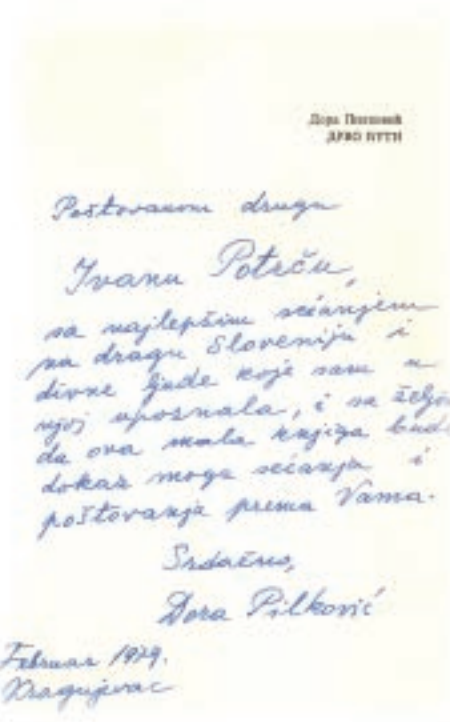 Дора Пилковић
ДРВО ЋУТИ
Poštovanom drugu
Ivanu Potrču,
sa najlepšim sećanjem
na dragu Sloveniju i
divne ljude koje sam u
njoj upoznala, i sa željo
da ova mala knjiga bude
dokaz moga sećanja i
poštovanja prema Vama.
Srdačno,
Dora Pilković
Februar 1979.
Kragujevac